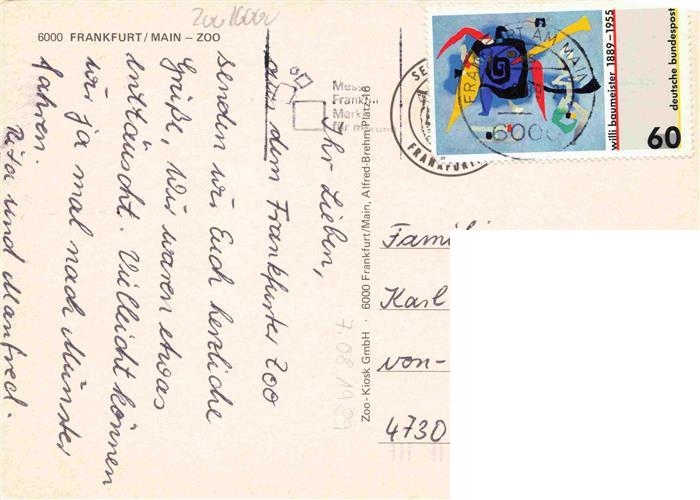 Zoo 1600
6000 FRANKFURT/MAIN – ZOO
Ihr Lieben,
aus dem Frankfurter Zoo
senden wir Euch herzliche
Grüße, Wir waren etwas
enttäuscht. Vielleicht können
wir ja mal nach Münster
fahren.
Uta und Manfred.
Messe
Frankfu
Mark
für morg
FRANKFURT AM MAIN
6000
FRANKFURT
willi baumeister 1889-1955
deutsche bundespost
60
Zoo-Kiosk GmbH · 6000 Frankfurt/Main, Alfred-Brehm-Platz 16
7.08.1989
Famili
Karl
von-
4730